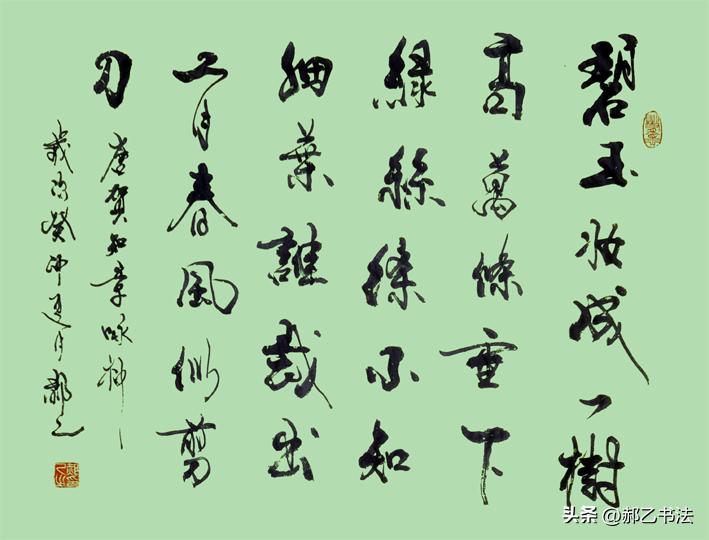 碧玉妆成一樹
高萬條垂下
綠絲絛不知
細葉誰裁出
二月春風似剪
刀
唐賀知章咏柳
歲次癸卯夏月郝乙
头条 @郝乙书法